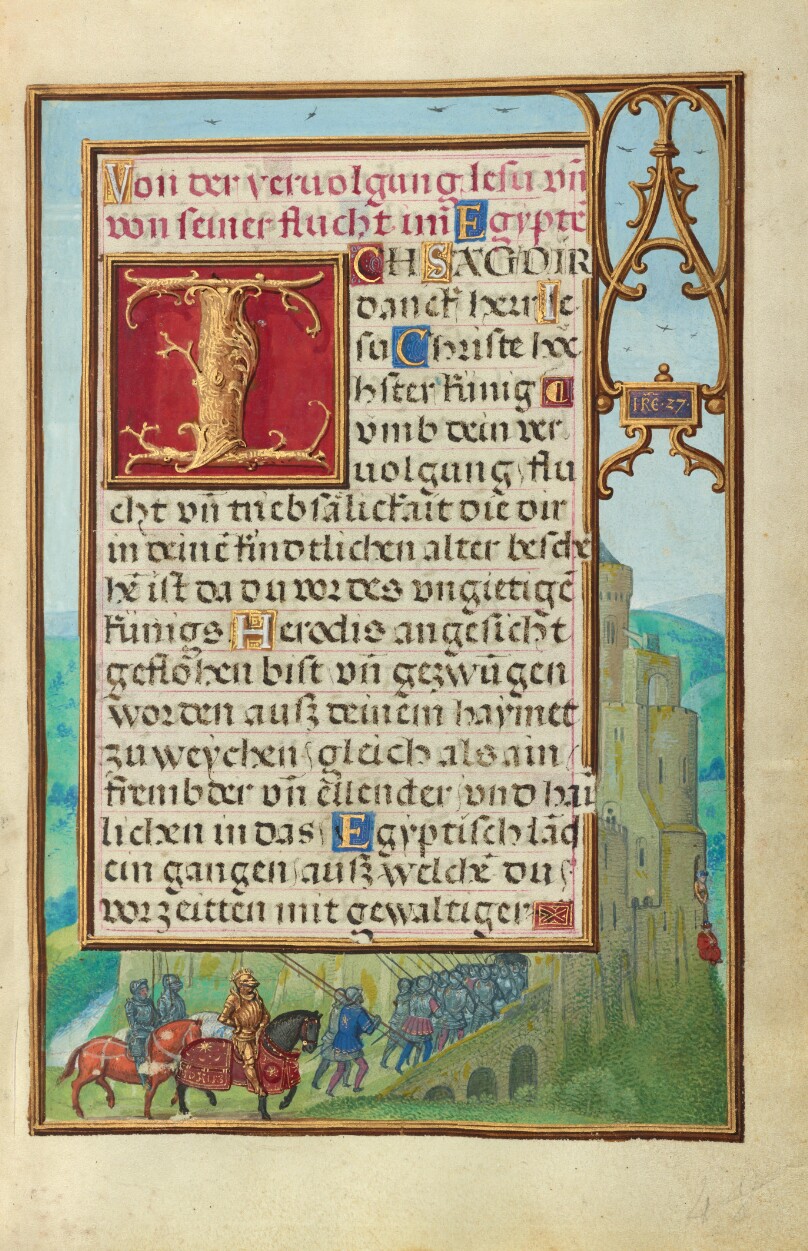 Von der veruolgung Iesu vn̄
von seiner flucht inn Egyptē
ICH SAG DIR
danck herr Ie-
su Christe höc
hster künig
vmb dein ver
uolgung flu
cht vn̄ triebsälickait die dir
in deinē kindtlichen alter besche
hē ist da du vor des vngietigē
künigs Herodis angesicht
geflohen bist vn̄ gezwūgen
worden ausz deinem haymet
zu weychen gleich als ain
frembder vn̄ ellender vnd hai
lichen in das Egyptisch lād
ein gangen ausz welchē du
vorzeitten mit gewaltiger
IRE·27·